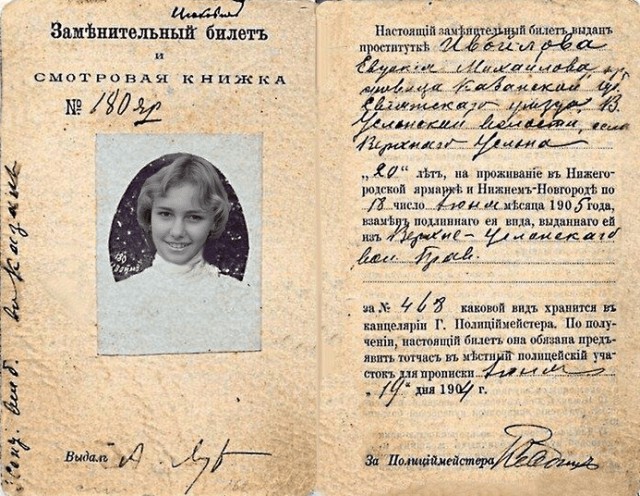 Замѣнительный билетъ
и
СМОТРОВАЯ КНИЖКА
№ 180 яр
Выдалъ
Настоящій замѣнительный билет выданъ
проституткѣ Ивойлова
Евдокія Михайлова, кр
Казанской губ.
уѣзда, В.
Услонской волости, села
Верхняго Услона
„20“ лѣтъ, на проживаніе въ Нижего-
родской ярмаркѣ и Нижнемъ-Новгородѣ по
18 число Іюня мѣсяца 1905 года,
взамѣнъ подлиннаго ея вида, выданнаго ей
изъ Верхне-Услонскаго
вол Прав.
за № 468 каковой видъ хранится въ
канцеляріи Г. Полиціймейстера. По полу-
ченіи, настоящій билетъ она обязана предъ-
явить тотчасъ въ мѣстный полицейскій уча-
стокъ для прописки Іюня
„19“ дня 1904 г.
За Полиціймейстера